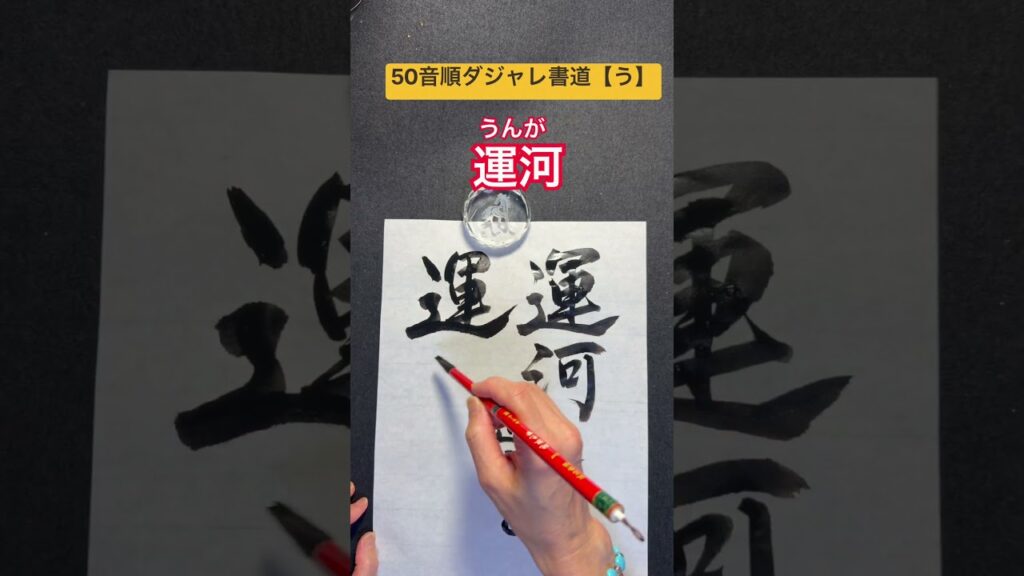 50音順ダジャレ書道【う】
うんが
運河
運河
運